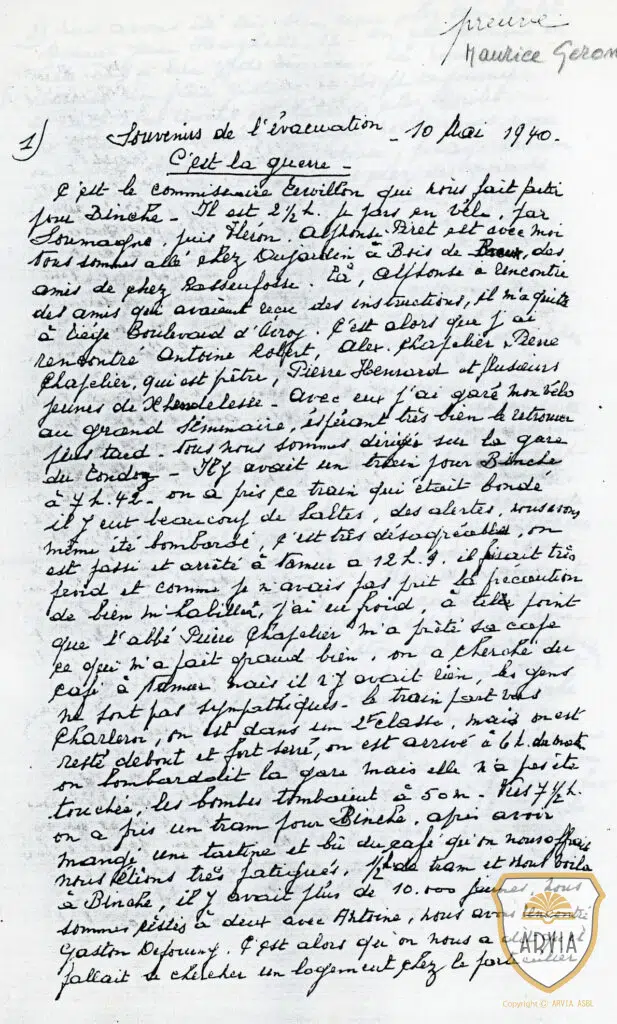 preuve
Maurice Geron
1) Souvenirs de l'évacuation - 10 Mai 1940.
C'est la guerre -
C'est le commissaire Ervillon qui nous fait partir
pour Binche - Il est 2½ h. je pars en vélo, par
Soumagne, puis Fléron. Alphonse Piret est avec moi
nous sommes allé chez Dujardin à Bois de Breux, des
amis de chez Hassenfosse. Là, Alphonse a rencontré
des amis qui avaient reçu des instructions, il m'a quitté
à Liège Boulevard d'Avroy. C'est alors que j'ai
rencontré Antoine Robert, Alex. Chapelier, Pierre
Chapelier, qui est prêtre, Pierre Henrard et plusieurs
jeunes de Xhendelesse - avec eux j'ai garé mon vélo
au grand Séminaire, espérant très bien le retrouver
plus tard - nous nous sommes dirigés sur la gare
du Condroz - Il y avait un train pour Binche
à 7 h. 42 - on a pris ce train qui était bondé
il y eut beaucoup de haltes, des alertes, nous avons
même été bombardé, c'est très désagréable, on
est passé et arrêté à Namur a 12 h. 9. il faisait très
froid et comme je n'avais pas prit la précaution
de bien m'habiller, j'ai eu froid, à tel point
que l'abbé Pierre Chapelier m'a prêté sa cape
ce qui m'a fait grand bien. on a cherché du
café à Namur mais il n'y avait rien, les gens
ne sont pas sympathiques - le train part vers
Charleroi, on est dans un 2e classe, mais on est
resté debout et fort serré, on est arrivé à 6 h. du matin
on bombardait la gare mais elle n'a pas été
touchée, les bombes tombaient à 50 m - Vers 7½ h.
on a pris un tram pour Binche, après avoir
mangé une tartine et bu du café qu'on nous offrait
nous étions très fatigués, ½ h de tram et nous voilà
à Binche, il y avait plus de 10.000 jeunes, nous
sommes restés à deux avec Antoine, nous avons rencontré
Gaston Defourny. C'est alors qu'on nous a
fallait se chercher un logement chez le particulier
ARVIA
Copyright © ARVIA ASBL